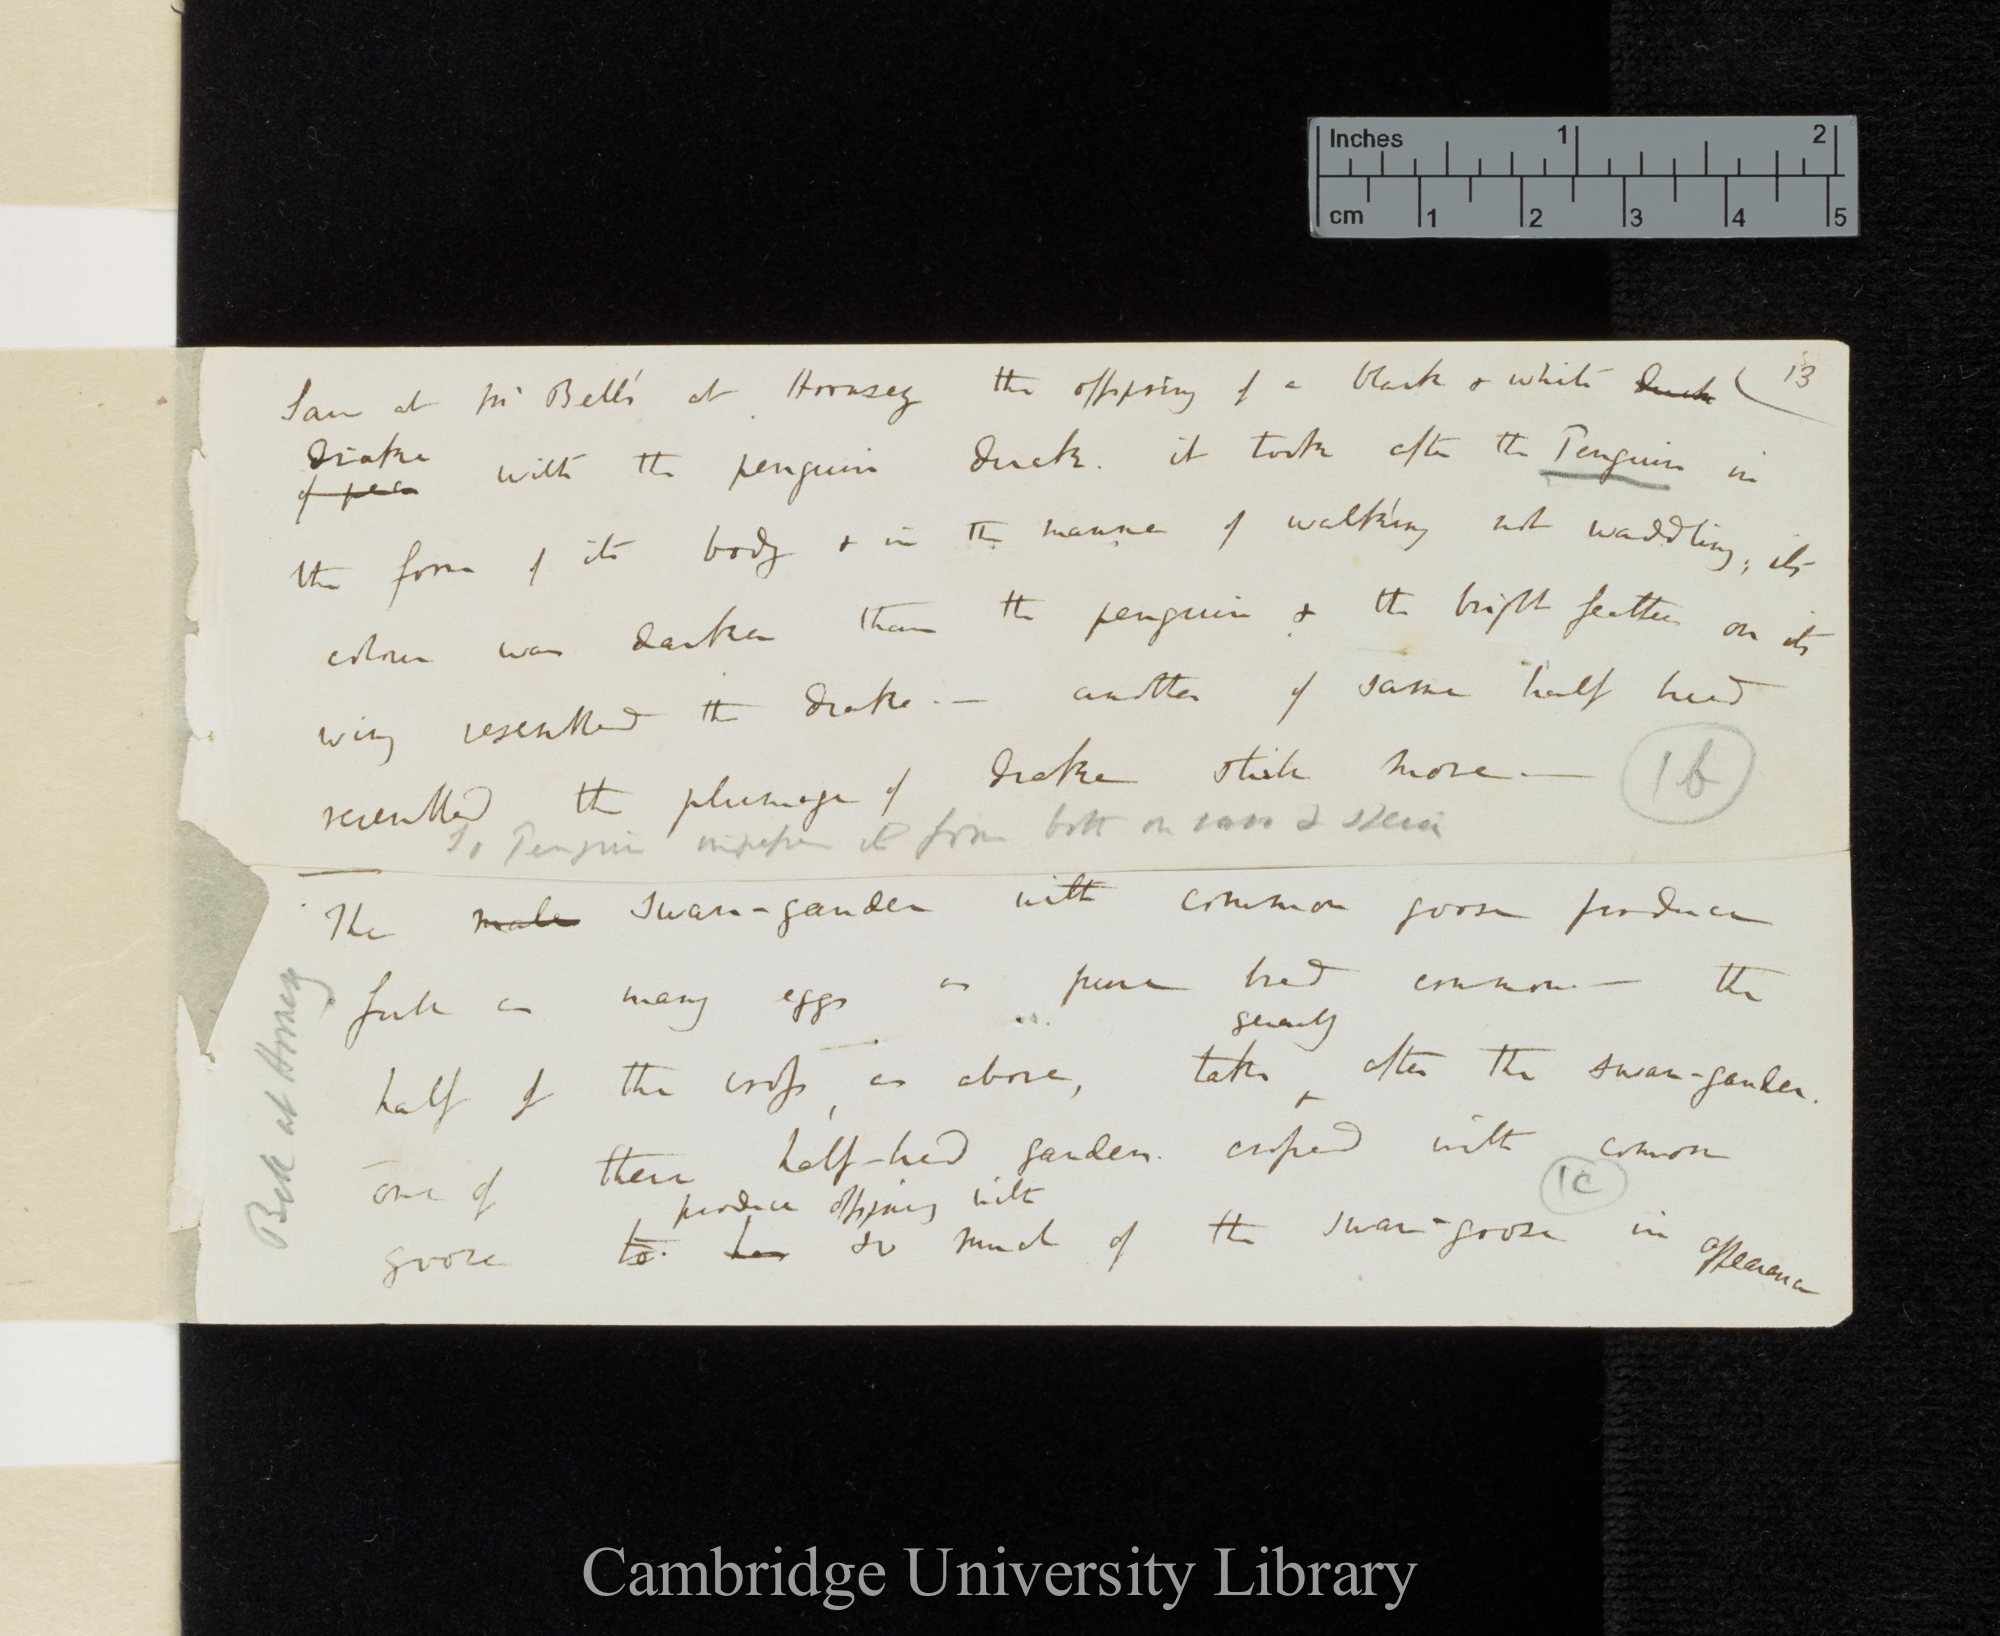 Inches 1 2
cm 1 2 3 4 5
13
Saw at Mr Bell's at Hornsey the offspring of a black & white duck
drake
with the penguin duck. it took after the Penguin in
the form of its body & in the manner of walking not waddling; its
colour was darker than the penguin & the bright feather on its
wing resembled the drake. — another of same half bred
resembled the plumage of drake still more. —
1b
Penguin form both on &
The male swan-gander with common goose produce
full as many eggs as pure bred common — the
generally
half of the cross, as above, take after the swan-gander.
&
one of these half-bred ganders crossed with common
1c
produce offspring with
goose to has so much of the swan-goose in appearance
Bell at Hornsey
Cambridge University Library